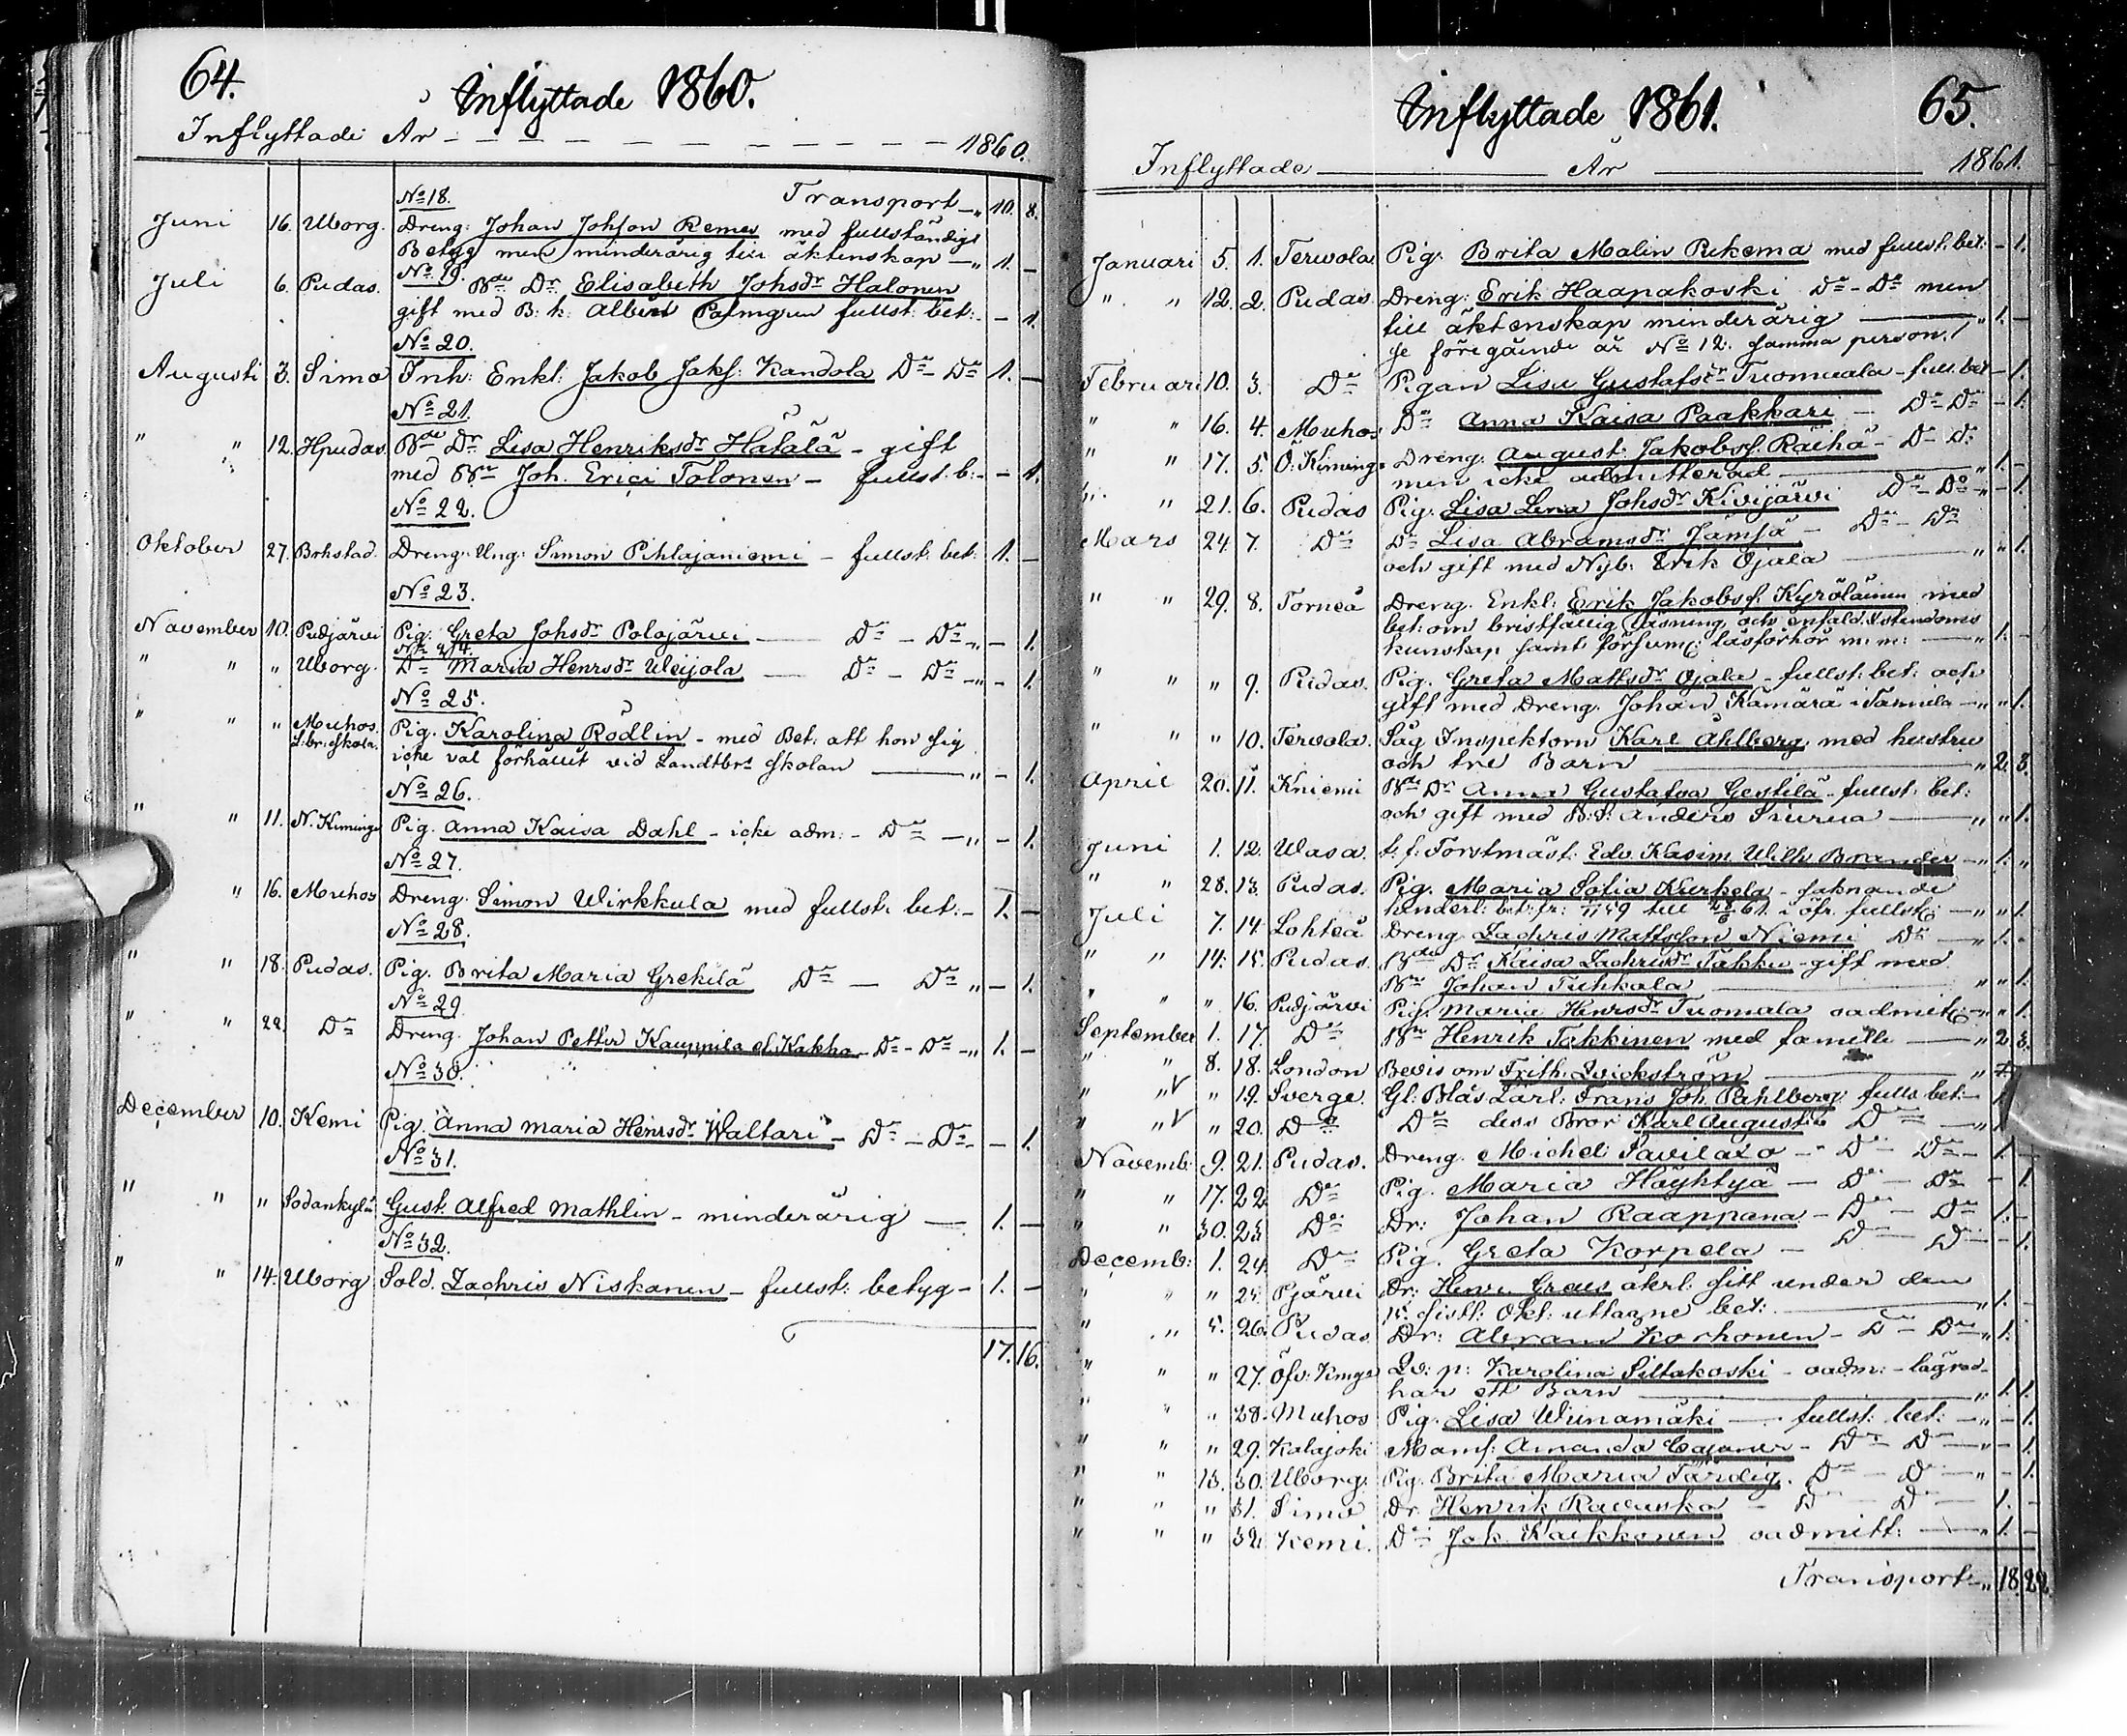 64.
Inflyttade 1860.
Inflyttade År 1860.
No 18. Transport 10. 8.
Juni 16. Uborg. Dreng: Johan Johsson Remes med fullständigt
Betyg men minderårig till äktenskap 1. —
Juli 6. Pudas. No 19 Bde Dr Elisabeth Johsdr Halonen
gift med B: k: Albert Palmgren fullst: bet: — 1.
No 20.
Augusti 3. Simo Inh: Enkl: Jakob Jaks: Kandola Do - Do 1. —
No 21.
" " 12. Hpudas Bde Dr Lisa Henriksdr Hatälä - gift
med Bde Joh. Erici Tolonen - fullst. b: - 1.
No 22.
Oktober 27. Brhstad. Dreng: Ung: Simon Pihlajaniemi - fullst: bet: 1. —
No 23.
November 10. Pudjärvi Pig: Greta Johsdr Polojärvi — Do - Do — 1.
No 24.
" " " Uborg. Do Maria Henrsdr Uleijola — Do - Do — 1.
No 25.
" " " Muhos L:br: skola. Pig. Karolina Rödlin - med Bet: att hon sig
icke väl förhållit vid Landtbrs skolan — 1.
No 26.
" " 11. N. Kiminge Pig. Anna Kaisa Dahl - icke adm: - Do — 1.
No 27.
" 16. Muhos Dreng. Simon Wirkkula med fullst: bet: - 1. —
No 28.
" " 18. Pudas. Pig. Brita Maria Grekilä Do — Do — 1.
No 29.
" " 22. Do Dreng. Johan Petter Kauppila el. Kakko Do - Do 1. —
No 30.
December 10. Kemi Pig. Anna Maria Henrsdr Waltari - Do - Do - 1.
No 31.
" " " Sodankylä Gust. Alfred Mathlin - minderårig — 1. —
No 32.
" " 14. Uborg Sold. Zachris Niskanen - fullst: betyg - 1. —
17. 16.
Inflyttade 1861. 65.
Inflyttade År 1861.
Januari 5. 1. Terwola Pig: Brita Malin Rekema med fullst: bet: - 1.
" " 12. 2. Pudas Dreng: Erik Haapakoski Do - Do men
till äktenskap minderårig 1. —
Se föregående år No 12. samma person.
Februari 10. 3. Do Pigan Lisa Gustafsdr Tuomaala - full. bet - 1.
" " 16. 4. Muhos Do Anna Kaisa Paakkari — Do - Do - 1.
" " 17. 5. Ö: Kiminge Dreng: August Jakobss. Räihä - Do Do
men icke admitterad 1. —
" " 21. 6. Pudas Pig. Lisa Lena Johsdr Kivijärvi Do - Do - 1.
Mars 24. 7. Do Do Lisa Abramsdr Jämsä - Do - Do
och gift med Nyb: Erik Ojala " 1.
" " 29. 8. Torneå Dreng. Enkl: Erik Jakobss. Kyröläinen med
bet: om bristfällig läsning och enfald. Kristendoms
kunskap samt försuml: läsförhör m:m: 1. —
" " " 9. Pudas. Pig. Greta Mattsdr Ojala - fullst: bet: och
gift med Dreng. Johan Kämärä i Tannila " 1.
" " " 10. Tervola. Såg Inspektorn Karl Åhlberg med hustru
och tre Barn 2. 3.
April 20. 11. Kniemi Bde Dr Anna Gustafva Gestilä - fullst: bet:
och gift med B:S: Anders Siurua " 1.
Juni 1. 12. Wasa. t. f. Forstmäst: Edv. Kasim. Wilh. Brander 1. "
" " 28. 13. Pudas. Pig. Maria Sofia Kurkela - saknande
hinderl: bet: fr: 59 till 28/6 61. i öfr. fullst: " 1.
Juli 7. 14. Lohteå Dreng. Zachris Mattsson Niemi Do 1. -
" " 14: 15. Pudas Bde Dr Kaisa Zachrisdr Takku - gift med
Bde Johan Tuhkala " 1.
" " " 16. Pudjärvi Pig. Maria Henrsdr Tuomala oadmit: 1.
September 1. 17. Do Bde Henrik Takkinen med familie 2 3.
" " 8. 18. London Bevis om Frith. Qvickström
" " V " 19. Sverge. Gl: Blås: Lärl: Frans Joh. Pahlberg fulls bet:
" " V " 20. Do Do dess Bror Karl August Do
Novemb: 9. 21. Pudas. Dreng. Michel Savilato - Do Do - 1. —
" " 17. 22 Do Pig. Maria Häyktyä - Do - Do - 1.
" " 30. 23 Do Dr: Johan Raappana - Do - Do 1. -
Decemb: 1. 24 Do Pig. Greta Korpela - Do Do - 1.
" " " 25. Pjärvi Dr: Henr. Graus återl: sitt under den
15. sistl: Okt: uttagne bet: 1. —
" " 5. 26. Pudas Dr: Abram Korhonen - Do - Do 1.
" " " 27. Öfv: Kmge Qv: p: Karolina Siltakoski - oadm: - lägrad -
har ett Barn 1. 1.
" " " 28. Muhos Pig. Lisa Wiinamäki — fullst: bet: - 1.
" " " 29. Kalajoki Mams: Amanda Cajaner - Do Do - 1.
" " 13. 30. Uborg. Pig. Brita Maria Färdig. Do - Do - 1.
" " " 31. Simo Dr. Henrik Ravaska - Do - Do - 1. -
" " " 32. Kemi. Do Joh. Kaikkonen oadmitt: 1. -
Transport 18. 22.